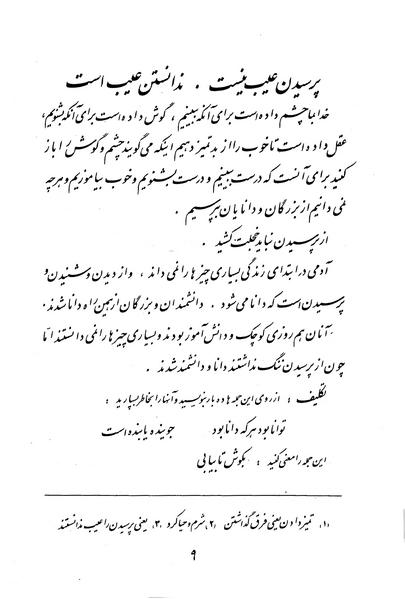 پرسیدن عیب نیست . ندانستن عیب است
خدا بما چشم داده است برای آنکه ببینیم ، گوش داده است برای آنکه بشنویم ،
عقل داده است تا خوب را از بد تمیز دهیم اینکه می گویند چشم و گوش را باز
کنید برای آنست که درست ببینیم و درست بشنویم و خوب بیاموزیم و هر چه
نمی دانیم از بزرگان و دانایان بپرسیم .
از پرسیدن نباید خجلت کشید .
آدمی در ابتدای زندگی بسیاری چیزها را نمی داند ، و از دیدن و شنیدن و
پرسیدن است که دانا می شود . دانشمندان و بزرگان از همین راه دانا شدند .
آنان هم روزی کوچک و دانش آموز بودند و بسیاری چیزها را نمی دانستند امّا
چون از پرسیدن ننگ نداشتند دانا و دانشمند شدند .
تکلیف : از روی این جمله ها ده بار بنویسید و آنها را بخاطر بسپارید :
توانا بود هر که دانا بود جوینده یابنده است
این جمله را معنی کنید : بکوش تا بیابی
(۱) تمیز دادن یعنی فرق گذاشتن (۲) شرم و حیا کرد (۳) یعنی پرسیدن را عیب ندانستند
۹